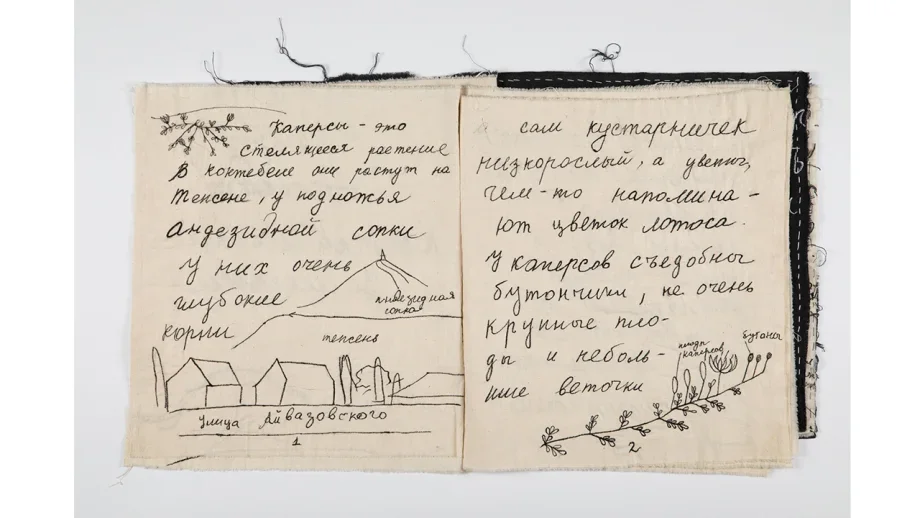 Каперсы - это
стелящееся растение
в коктебеле они растут на
тепсене, у подножья
андезидной сопки
У них очень
глубокие
корни
андезидная
сопка
тепсень
улица Айвазовского
1
сам кустарничек
низкорослый, а цветы,
чем-то напомина-
ют цветок лотоса.
У каперсов съедобны
бутончики, не очень
крупные пло-
ды и неболь-
шие веточки
плоды
каперсов
бутоны
2